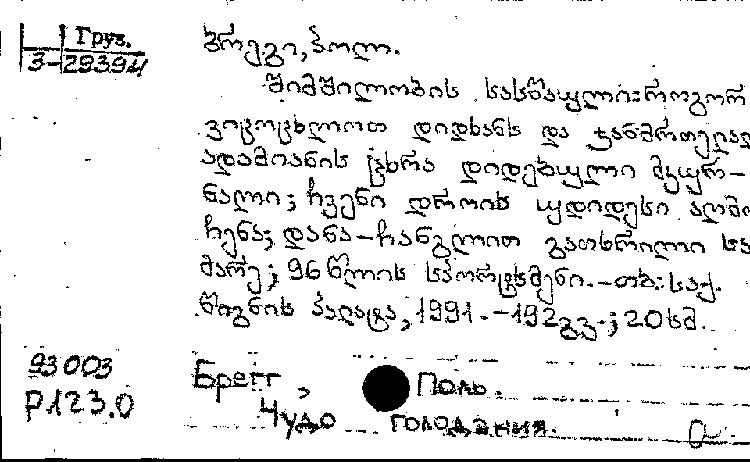 Груз.
3-29394
ბრეგი, პოლ.
შიმშილობის სასწაული: როგორ
ვიცოცხლოთ დიდხანს და ჯანმრთელად
ადამიანის ცხრა დიდებული მკურ-
ნალი; ჩვენი დროის უდიდესი აღმო
ჩენა; დანა-ჩანგლით გათხრილი სა
მარე; 96 წლის სპორტსმენი. -თბ.: საქ.
წიგნის პალატა, 1991. -192გვ.; 20სმ.
93 003
Р123.0
Брегг, Поль.
Чудо голодания.